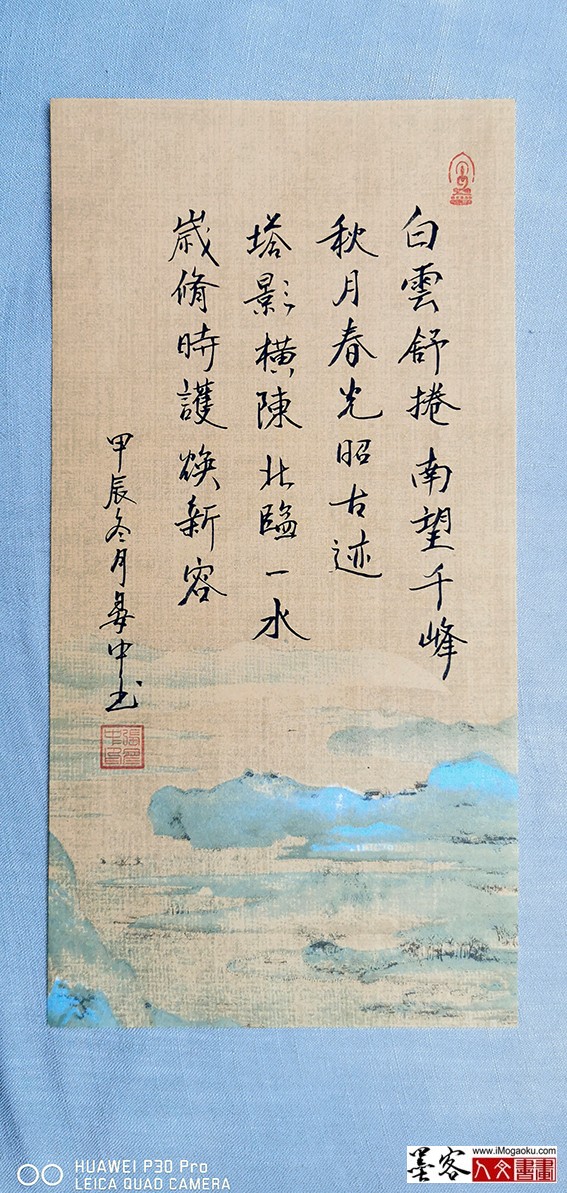 白雲舒捲南望千峰
秋月春光昭古迹
塔影橫陳北臨一水
歲脩時護焕新容
甲辰冬月每中书
HUAWEI P30 Pro
LEICA QUAD CAMERA
墨客
www.iMogaoku.com
人文書畫